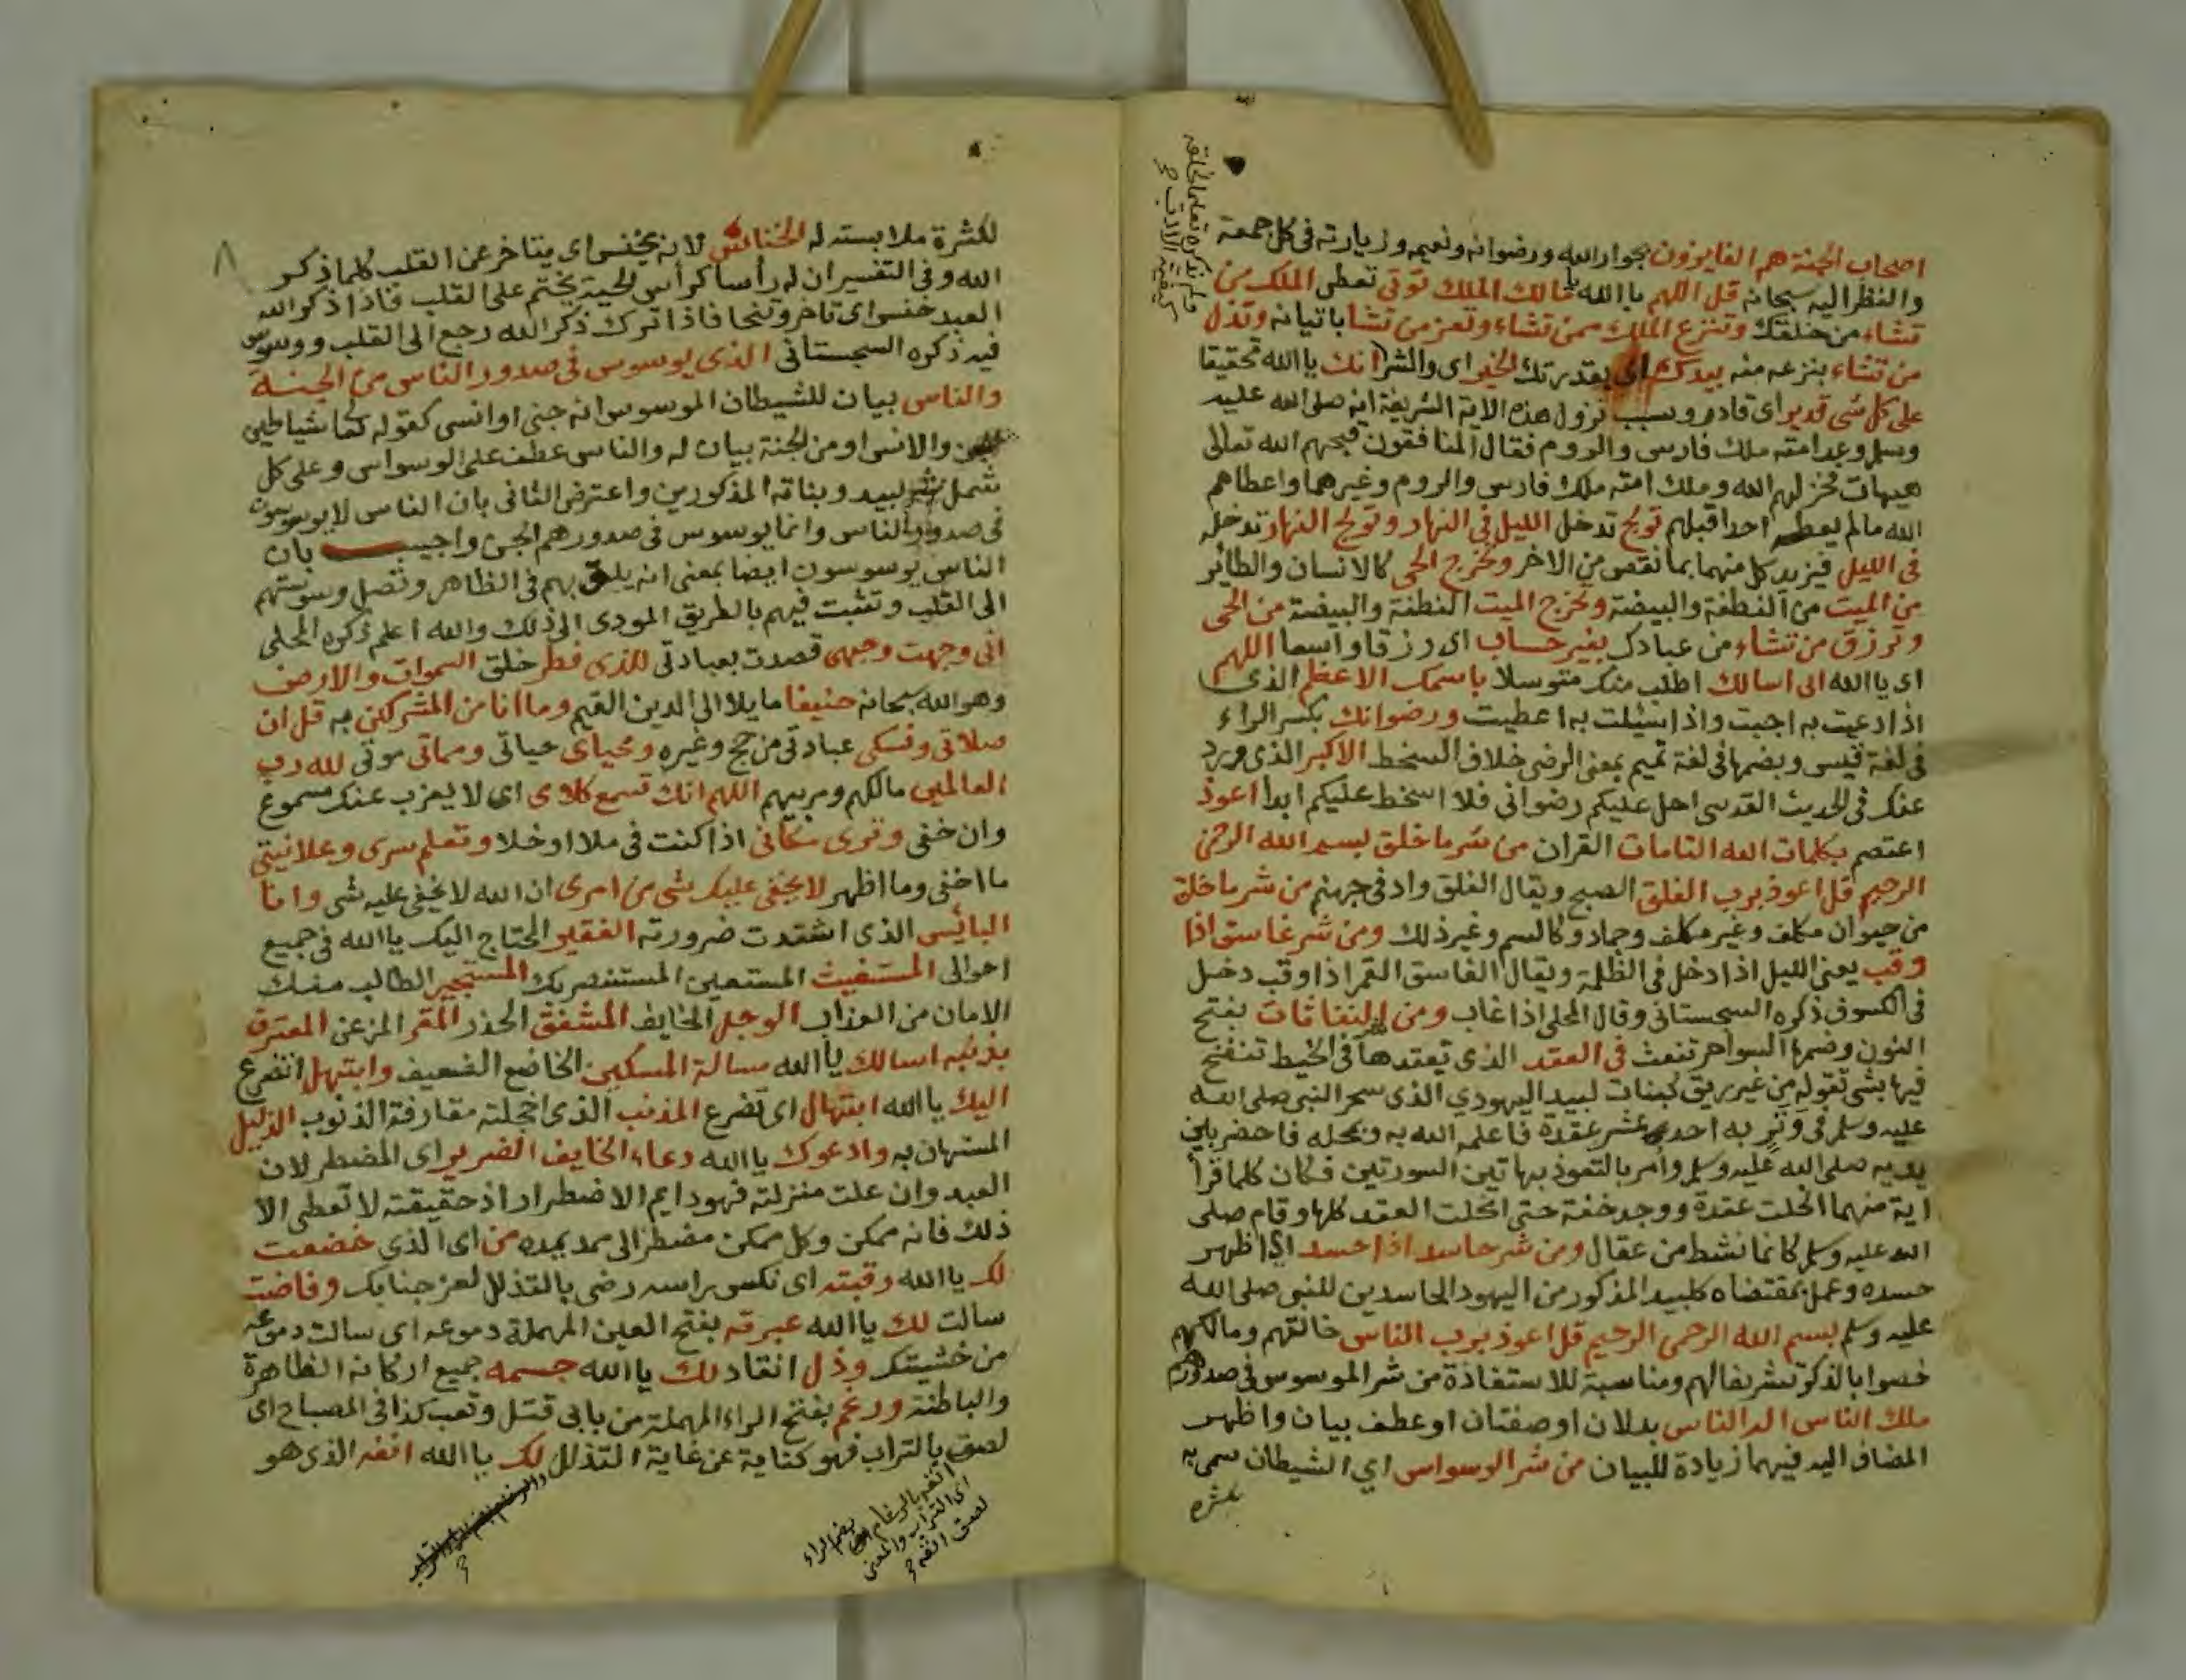 اصحاب الجنة هم الفايزون بجوار الله ورضوانه ونعيمه وزيارته في كل جمعة
والنظر اليه سبحانه قل اللهم يا الله مالك الملك توتي تعطي الملك من
تشاء من خلقك وتنزع الملك ممن تشاء وتعز من تشا باتيانه وتذل
من تشاء بنزعه منه بيدك اي بقدرتك الخير اي والشر انك يا الله تحقيقا
على كل شي قدير اي قادر وسبب نزول هذه الاية الشريفة انه صلى الله عليه
وسلم وعد امته ملك فارس والروم فقال المنافقون قبحهم الله تعالى
هيهات فخزلهم الله وملك امته ملك فارس والروم وغيرهما واعطاهم
الله مالم يعطه احدا قبلهم تولج تدخل الليل في النهار وتولج النهار تدخله
في الليل فيزيد كل منهما بما نقص من الاخر وتخرج الحي كالانسان والطائر
من الميت من النطفة والبيضة وتخرج الميت النطفة والبيضة من الحي
وترزق من تشاء من عبادك بغير حساب اي رزقا واسعا اللهم
اي يا الله اني اسالك اطلب منك متوسلا باسمك الاعظم الذي
اذا دعيت به اجبت واذا سئلت به اعطيت ورضوانك بكسر الراء
في لغة قيس وبضمها في لغة تميم بمعنى الرضى خلاف السخط الاكبر الذي ورد
عنك في الحديث القدسي احل عليكم رضواني فلا اسخط عليكم ابدا اعوذ
اعتصم بكلمات الله التامات القران من شر ما خلق بسم الله الرحمن
الرحيم قل اعوذ برب الفلق الصبح ويقال الفلق واد في جهنم من شر ما خلق
من حيوان مكلف وغير مكلف وجماد وكالسم وغير ذلك ومن شر غاسق اذا
وقب يعني الليل اذا دخل في الظلمة ويقال الغاسق القمر اذا وقب دخل
في الكسوف ذكره السجستاني وقال المحلي اذا غاب ومن شر النفاثات بفتح
النون وضمها السواحر تنفث في العقد الذي تعقدها في الخيط تنفخ
فيها بشي تقوله من غير ريق كبنات لبيد اليهودي الذي سحر النبي صلى الله
عليه وسلم في وتر به احدى عشر عقدة فاعلمه الله به وبمحله فاحضر بين
يديه صلى الله عليه وسلم وامر بالتعوذ بهاتين السورتين فكان كلما قرأ
اية منهما انحلت عقدة ووجد خفة حتى انحلت العقد كلها وقام صلى
الله عليه وسلم كانما نشط من عقال ومن شر حاسد اذا حسد اي اظهر
حسده وعمل بمقتضاه كلبيد المذكور من اليهود الحاسدين للنبي صلى الله
عليه وسلم بسم الله الرحمن الرحيم قل اعوذ برب الناس خالقهم ومالكهم
خصوا بالذكر تشريفا لهم ومناسبة للاستعاذة من شر الموسوس في صدورهم
ملك الناس اله الناس بدلان او صفتان او عطف بيان واظهر
المضاف اليه فيهما زيادة للبيان من شر الوسواس اي الشيطان سمي به
لكثرة
لكثرة ملابسته له الخناس لانه يخنس اي يتاخر عن القلب كلما ذكر
الله وفي التفسير ان له رأسا كرأس الحية يختم على القلب فاذا ذكر الله
العبد خنس اي تاخر وتنحا فاذا ترك ذكر الله رجع الى القلب ووسوس
فيه ذكره السجستاني الذي يوسوس في صدور الناس من الجنة
والناس بيان للشيطان الموسوس انه جني او انسي كقوله تعالى شياطين
الجن والانس او من الجنة بيان له والناس عطف على الوسواس وعلى كل
شمل شر لبيد وبناته المذكورين واعترض الثاني بان الناس لا يوسوسون
في صدور الناس وانما يوسوس في صدورهم الجن واجيب بان
الناس يوسوسون ايضا بمعنى انه يليق بهم في الظاهر وتصل وسوستهم
الى القلب وتثبت فيهم بالطريق المودي الى ذلك والله اعلم ذكره المحلي
اني وجهت وجهي قصدت بعبادتي للذي فطر خلق السموات والارض
وهو الله سبحانه حنيفا مايلا الى الدين القيم وما انا من المشركين به قل ان
صلاتي ونسكي عبادتي من حج وغيره ومحياي حياتي ومماتي موتي لله رب
العالمين مالكهم ومربيهم اللهم انك تسمع كلامي اي لا يعزب عنك مسموع
وان خفى وترى مكاني اذا كنت في ملا او خلا وتعلم سري وعلانيتي
ما اخفى وما اظهر لا يخفى عليك شي من امري ان الله لا يخفى عليه شي وانا
البائس الذي اشتدت ضرورته الفقير المحتاج اليك يا الله في جميع
احوالي المستغيث المستعين المستنصر بك المستجير الطالب منك
الامان من العذاب الوجل الخايف المشفق الحذر المقر المزعن المعترف
بذنبه اسالك يا الله مسالة المسكين الخاضع الضعيف وابتهل اتضرع
اليك يا الله ابتهال اي تضرع المذنب الذي اخجلته مقارفة الذنوب الذليل
المستهان به وادعوك يا الله دعاء الخايف الضرير اي المضطر لان
العبد وان علت منزلته فهو دايم الاضطرار اذ حقيقته لا تعطي الا
ذلك فانه ممكن وكل ممكن مضطر الى ممد يمده من اي الذي خضعت
لك يا الله رقبته اي نكس راسه رضى بالتذلل لعز جنابك وفاضت
سالت لك يا الله عبرته بفتح العين المهملة دموعه اي سالت دموعه
من خشيتك وذل انقاد لك يا الله جسمه جميع اركانه الظاهرة
والباطنة ورغم بفتح الراء المهملة من بابي قتل وتعب كذا في المصباح اي
لصق بالتراب فهو كناية عن غاية التذلل لك يا الله انفه الذي هو
انفه بالرغام بضم الراء
اي التراب والمعنى
لصق انفه